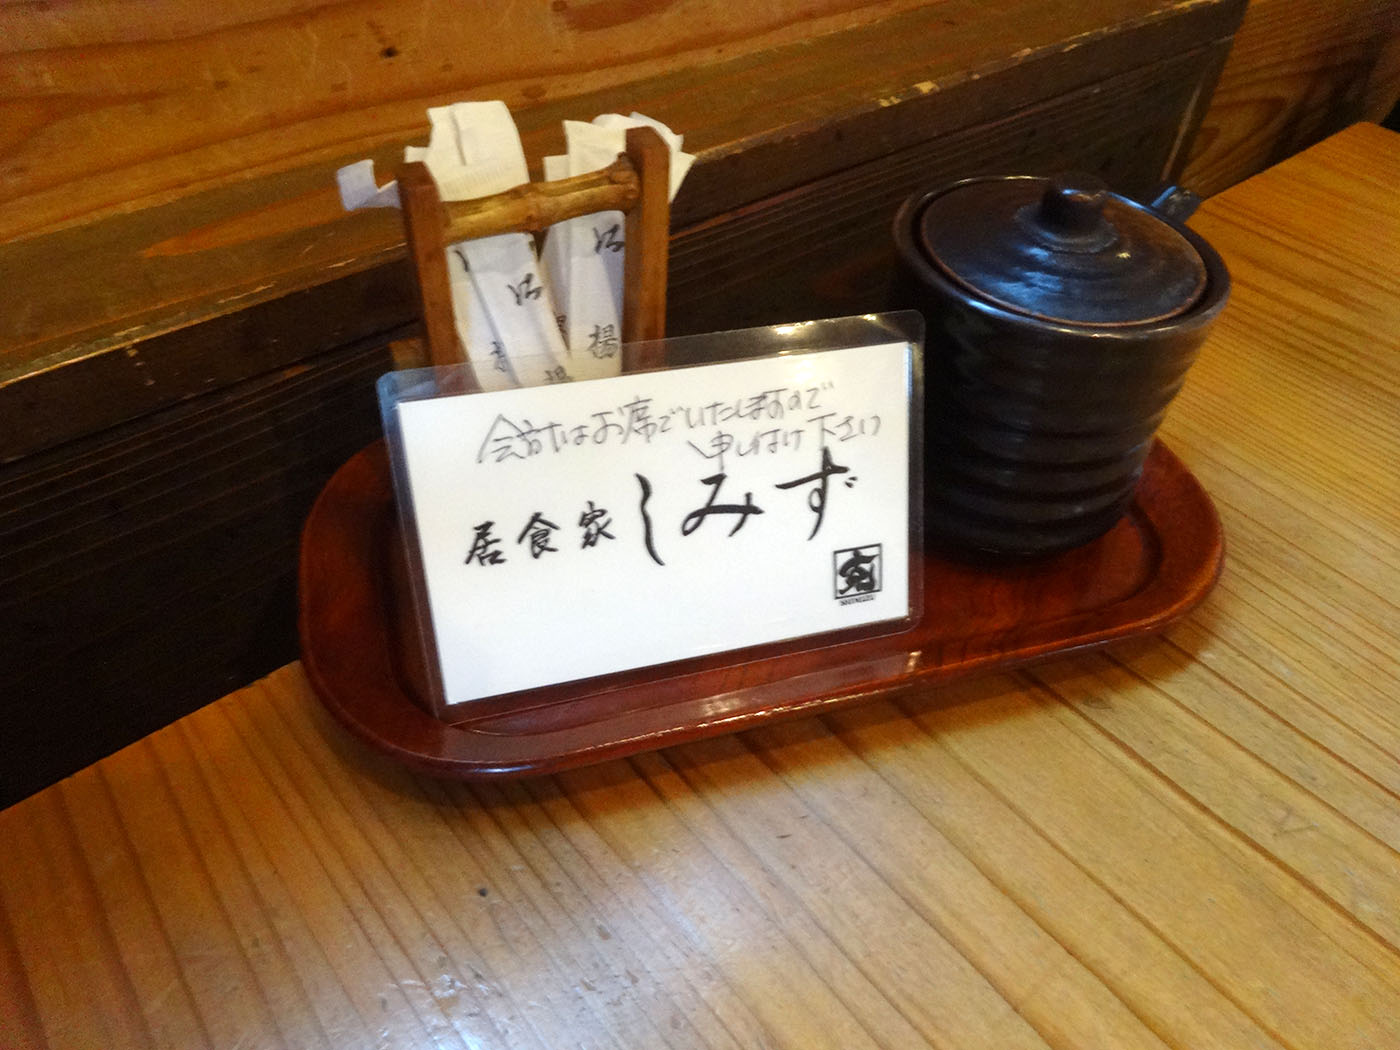 会計はお席でいたしますので
申し付け下さい
居食家しみず
揚